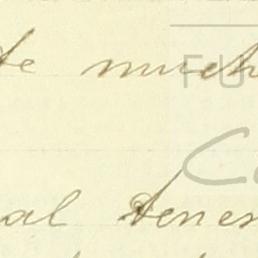 te much
FU
C
al tener